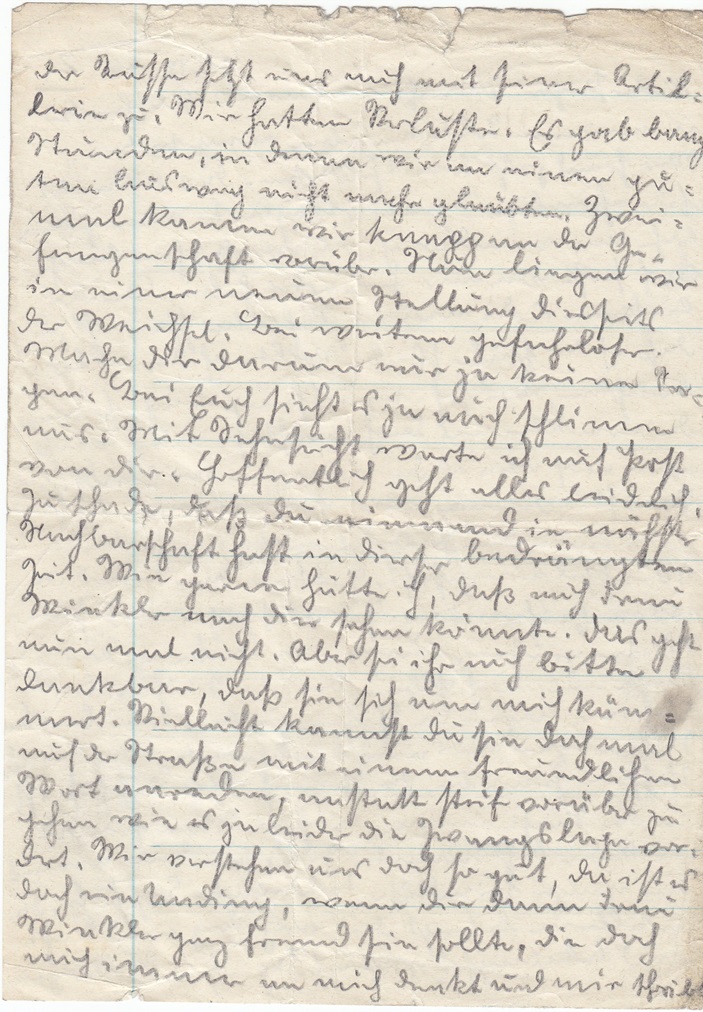 der Russe setzt uns auch mit seiner Artil-
lerie zu. Wir hatten Verluste. Es gab bange
Stunden, in denen wir an einen gu-
ten Ausweg nicht mehr glaubten. Zwei-
mal kamen wir knapp an der Ge-
fangenschaft vorüber. Nun liegen wir
in einer neuen Stellung diesseits
der Weichsel. Bei weitem gefahrloser.
Mache dir darum nur ja keine Sor-
gen. Bei Euch sieht es ja auch schlimm
aus. Mit Sehnsucht warte ich auf Post
von dir. Hoffentlich geht alles leidlich.
Zu schade, daß du niemand in nächster
Nachbarschaft hast in dieser bedrängten
Zeit. Wie gerne hätte ich, daß auch Frau
Winkler nach dir sehen könnte. Das geht
nun mal nicht. Aber sei ihr auch bitte
dankbar, daß sie sich um mich küm-
mert. Vielleicht kannst du sie doch mal
auf der Straße mit einem freundlichen
Wort anreden, anstatt steif vorüber zu
gehen wie es ja leider die Zwangslage for-
dert. Wir verstehen uns doch so gut, da ist es
doch ein Unding, wenn dir dann Frau
Winkler ganz fremd sein sollte, die doch
auch immer an mich denkt und mir schreibt